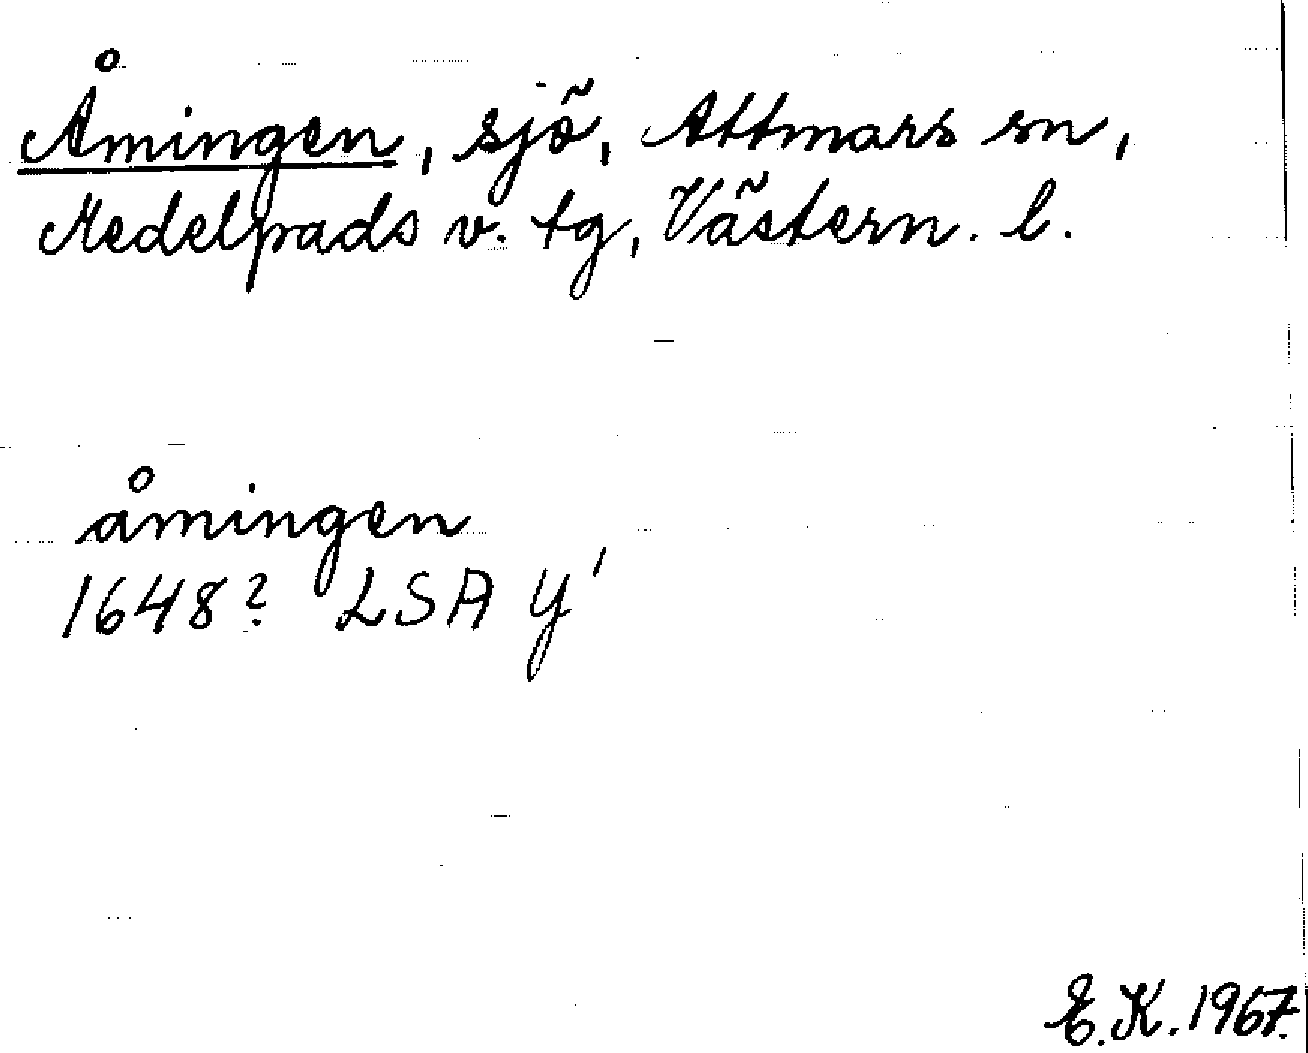 Åmingen, sjö, Attmars sn,
Medelpads v. tg, Västern. l.
åmingen
1648? LSA Y'
E.K. 1967.